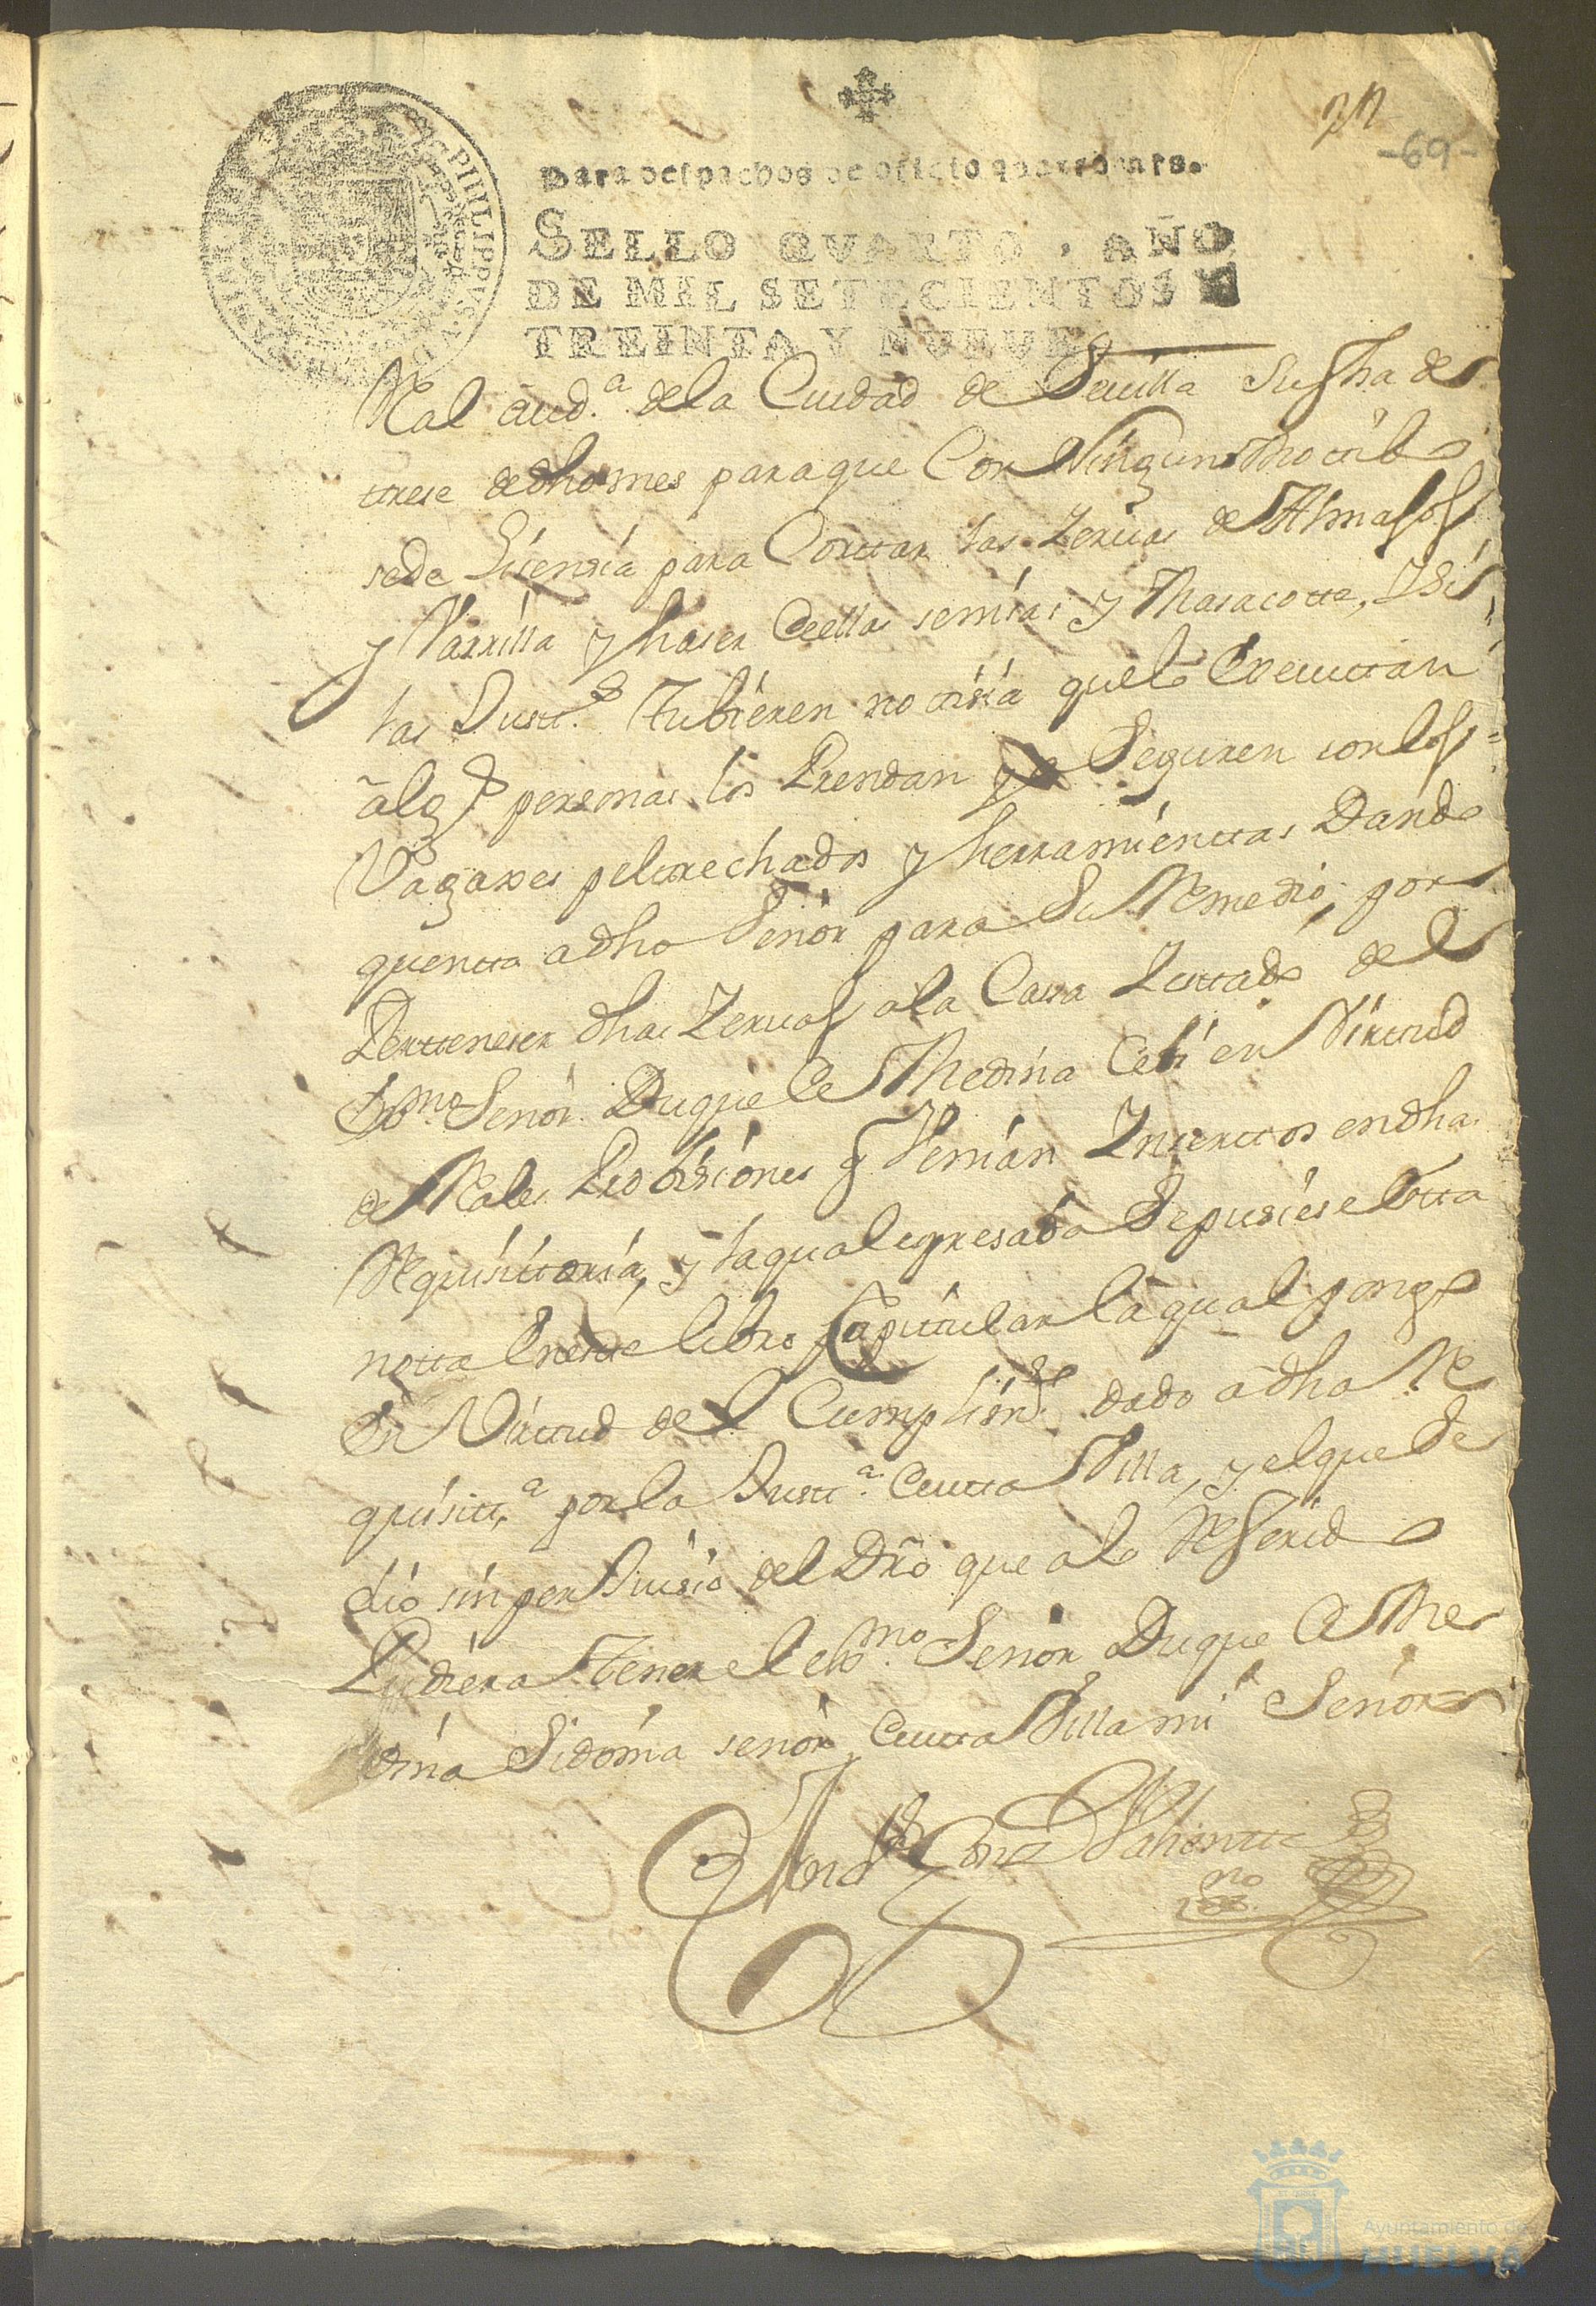 -69-
PHILIPPVS V D
Para despachos de oficio quatro mrs.
SELLO QVARTO, AÑO
DE MIL SETECIENTOS Y
TREINTA Y NUEVE
Real aud.ª de la Ciudad de Sevilla su fha de
trese de dho mes para que Con Ningun Motibo
se de Lisensia para Corttar las Yervas de Almajos
y Varrilla y haser de ellas senisas y Masacotte, Y si
las Justt.s tubieren notisia que lo Executtan
alg.s personas los Prendan y a Seguren con los
Vagaxes peltrechados y herramienttas Dando
quentta a dho Señor para Su Remedio, por
Pertteneser dhas Yervas a la Casa Y esttado del
Exmo Señor Duque de Medina Celi en Virttud
de Rales Probisiones q Venian Insercttos en dha
Requisittoria, y la qual expresaba Se pusiese Estta
notta En este libro Capittular la qual pongo
En Virttud del Cumplim.to dado a dha Re
quisitt.ª por la Justt.ª de estta Villa, y el que se
dio sin perJuisio del Dro que a lo Referido
Pudiera tener el exmo Señor Duque de Me
dina Sidonia señor de estta Villa mi Señor
Valientte
Ayuntamiento de
HUELVA